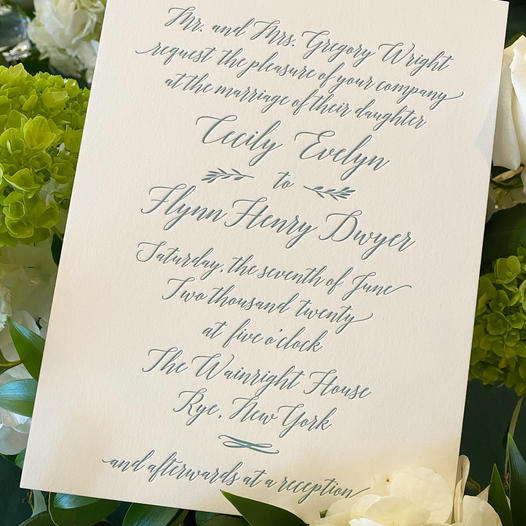 Mr. and Mrs. Gregory Wright
request the pleasure of your company
at the marriage of their daughter
Cecily Evelyn
to
Flynn Henry Dwyer
Saturday, the seventh of June
Two thousand twenty
at five o'clock
The Wainright House
Rye, New York
and afterwards at a reception